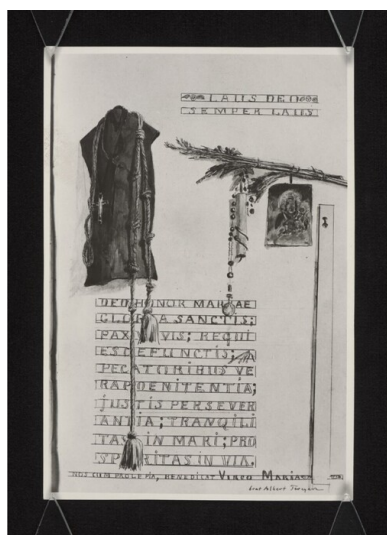 LAUS DEI
SEMPER LAUS
DEO HONOR MARIAE
GLORIA SANCTIS;
PAX VIVIS; REQUI
ES DEFUNCTIS;
PECATORIBUS VE
RA POENITENTIA;
JUSTIS PERSEVER
ANTIA; TRANQILI
TAS IN MARI; PRO
SPERITAS IN VIA.
NOS CUM PROLE PIA, BENEDICAT VIRGO MARIA
Albert